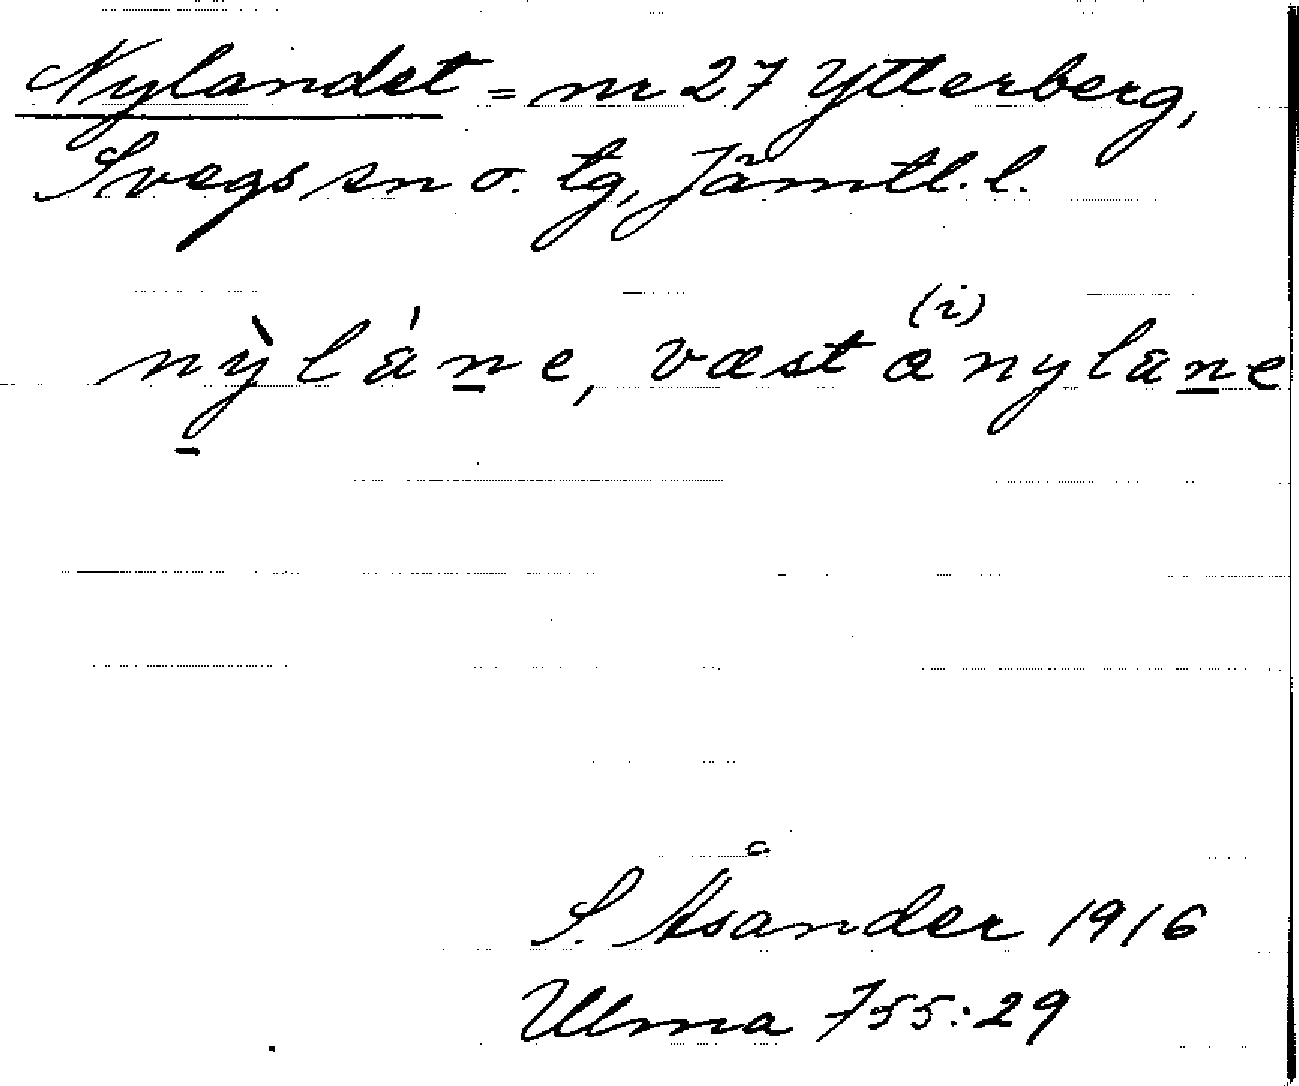 Nylandet = nr 27 Ytterberg,
Svegs sn o. tg, Jämtl. l.
(i)
nỳláne, væst a nylane
S. Åsander 1916
Ulma 755:29